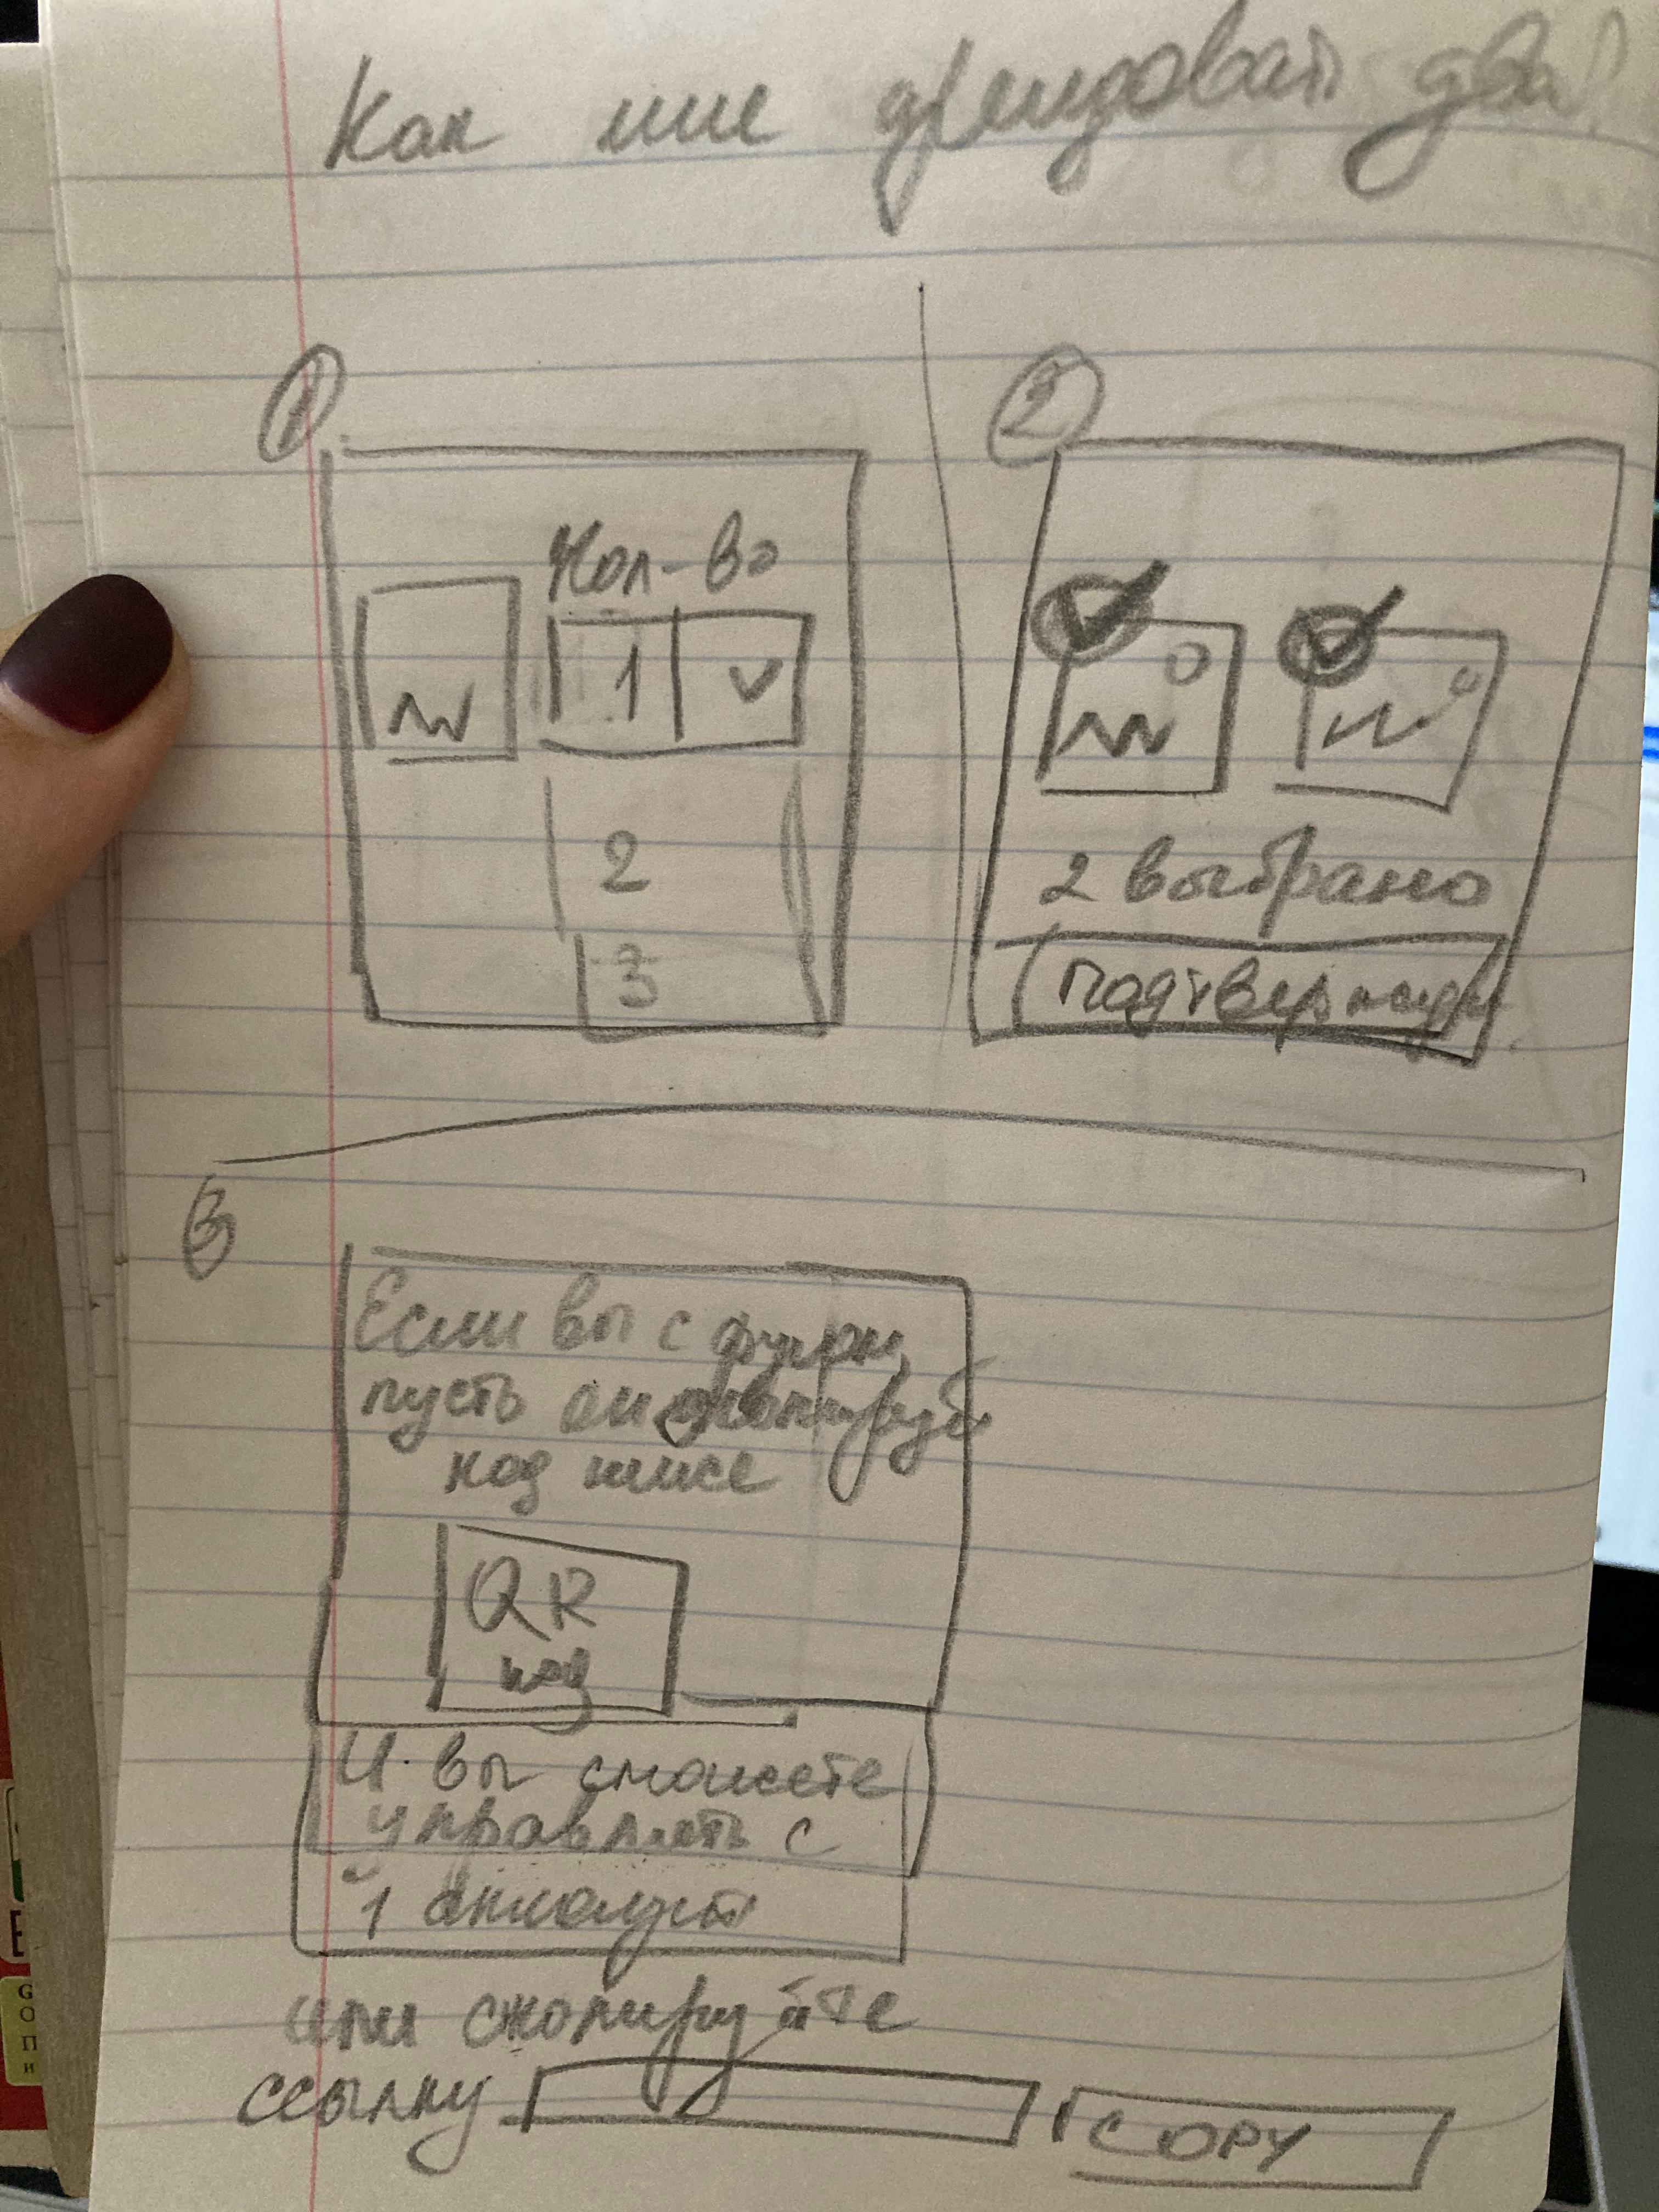 Как мне арендовать два?
1
Кол-во
1
2
3
2
2 выбрано
Подтвержд
3
Если вы с другом,
пусть он
код ниже
QR
код
И вы сможете
управлять с
1 аккаунта
или скопируйте
ссылку
COPY